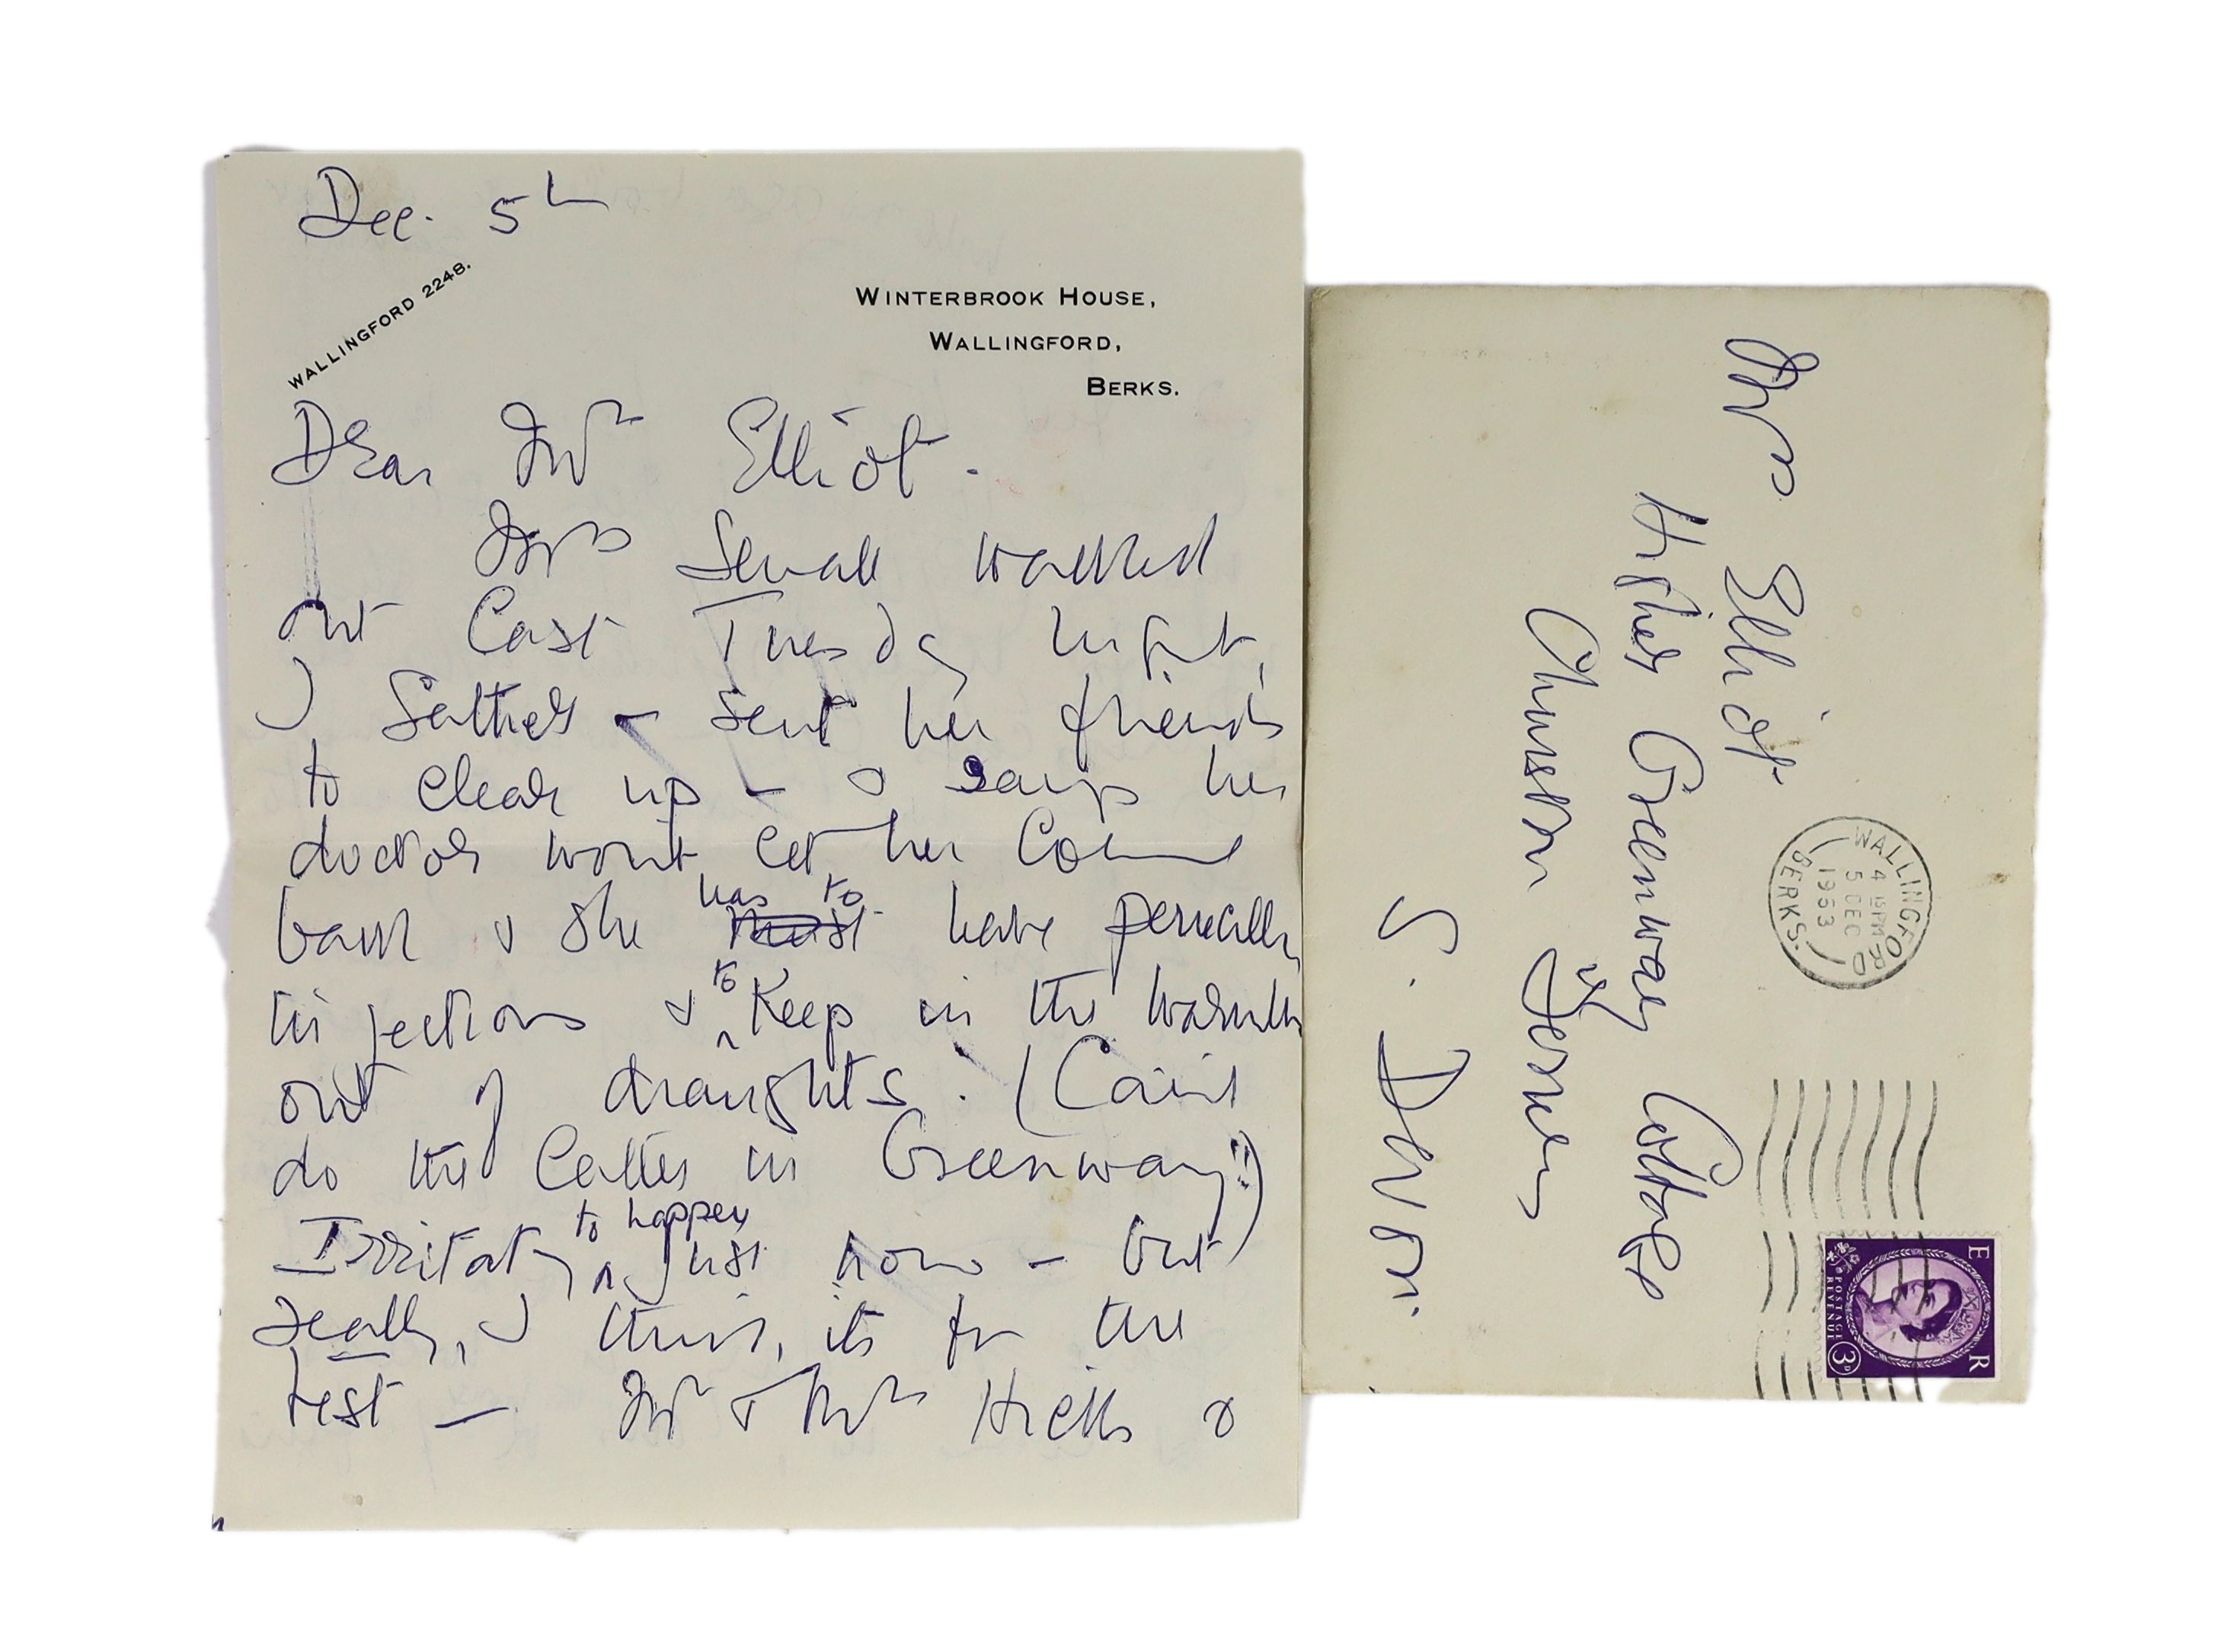 Dec. 5th
WALLINGFORD 2248.
WINTERBROOK HOUSE,
WALLINGFORD,
BERKS.
Dear Mrs Elliot.
Mrs walked
out last Tuesday night,
I gather – sent her friends
to clear up – & says her
doctor won't let her come
back & she has to must have penicillin
injections & to keep in the warmth
out of draughts. (Can't
do the latter in Greenway!!)
to happen just now – but
really, I think, its for the
best – Mr & Mrs Hicks &
Mrs Elliot
Higher Greenway Cottage
Churston Ferrers
S. Devon.
WALLINGFORD
4 15 PM
5 DEC
1953
BERKS.
E R
POSTAGE
REVENUE
3D